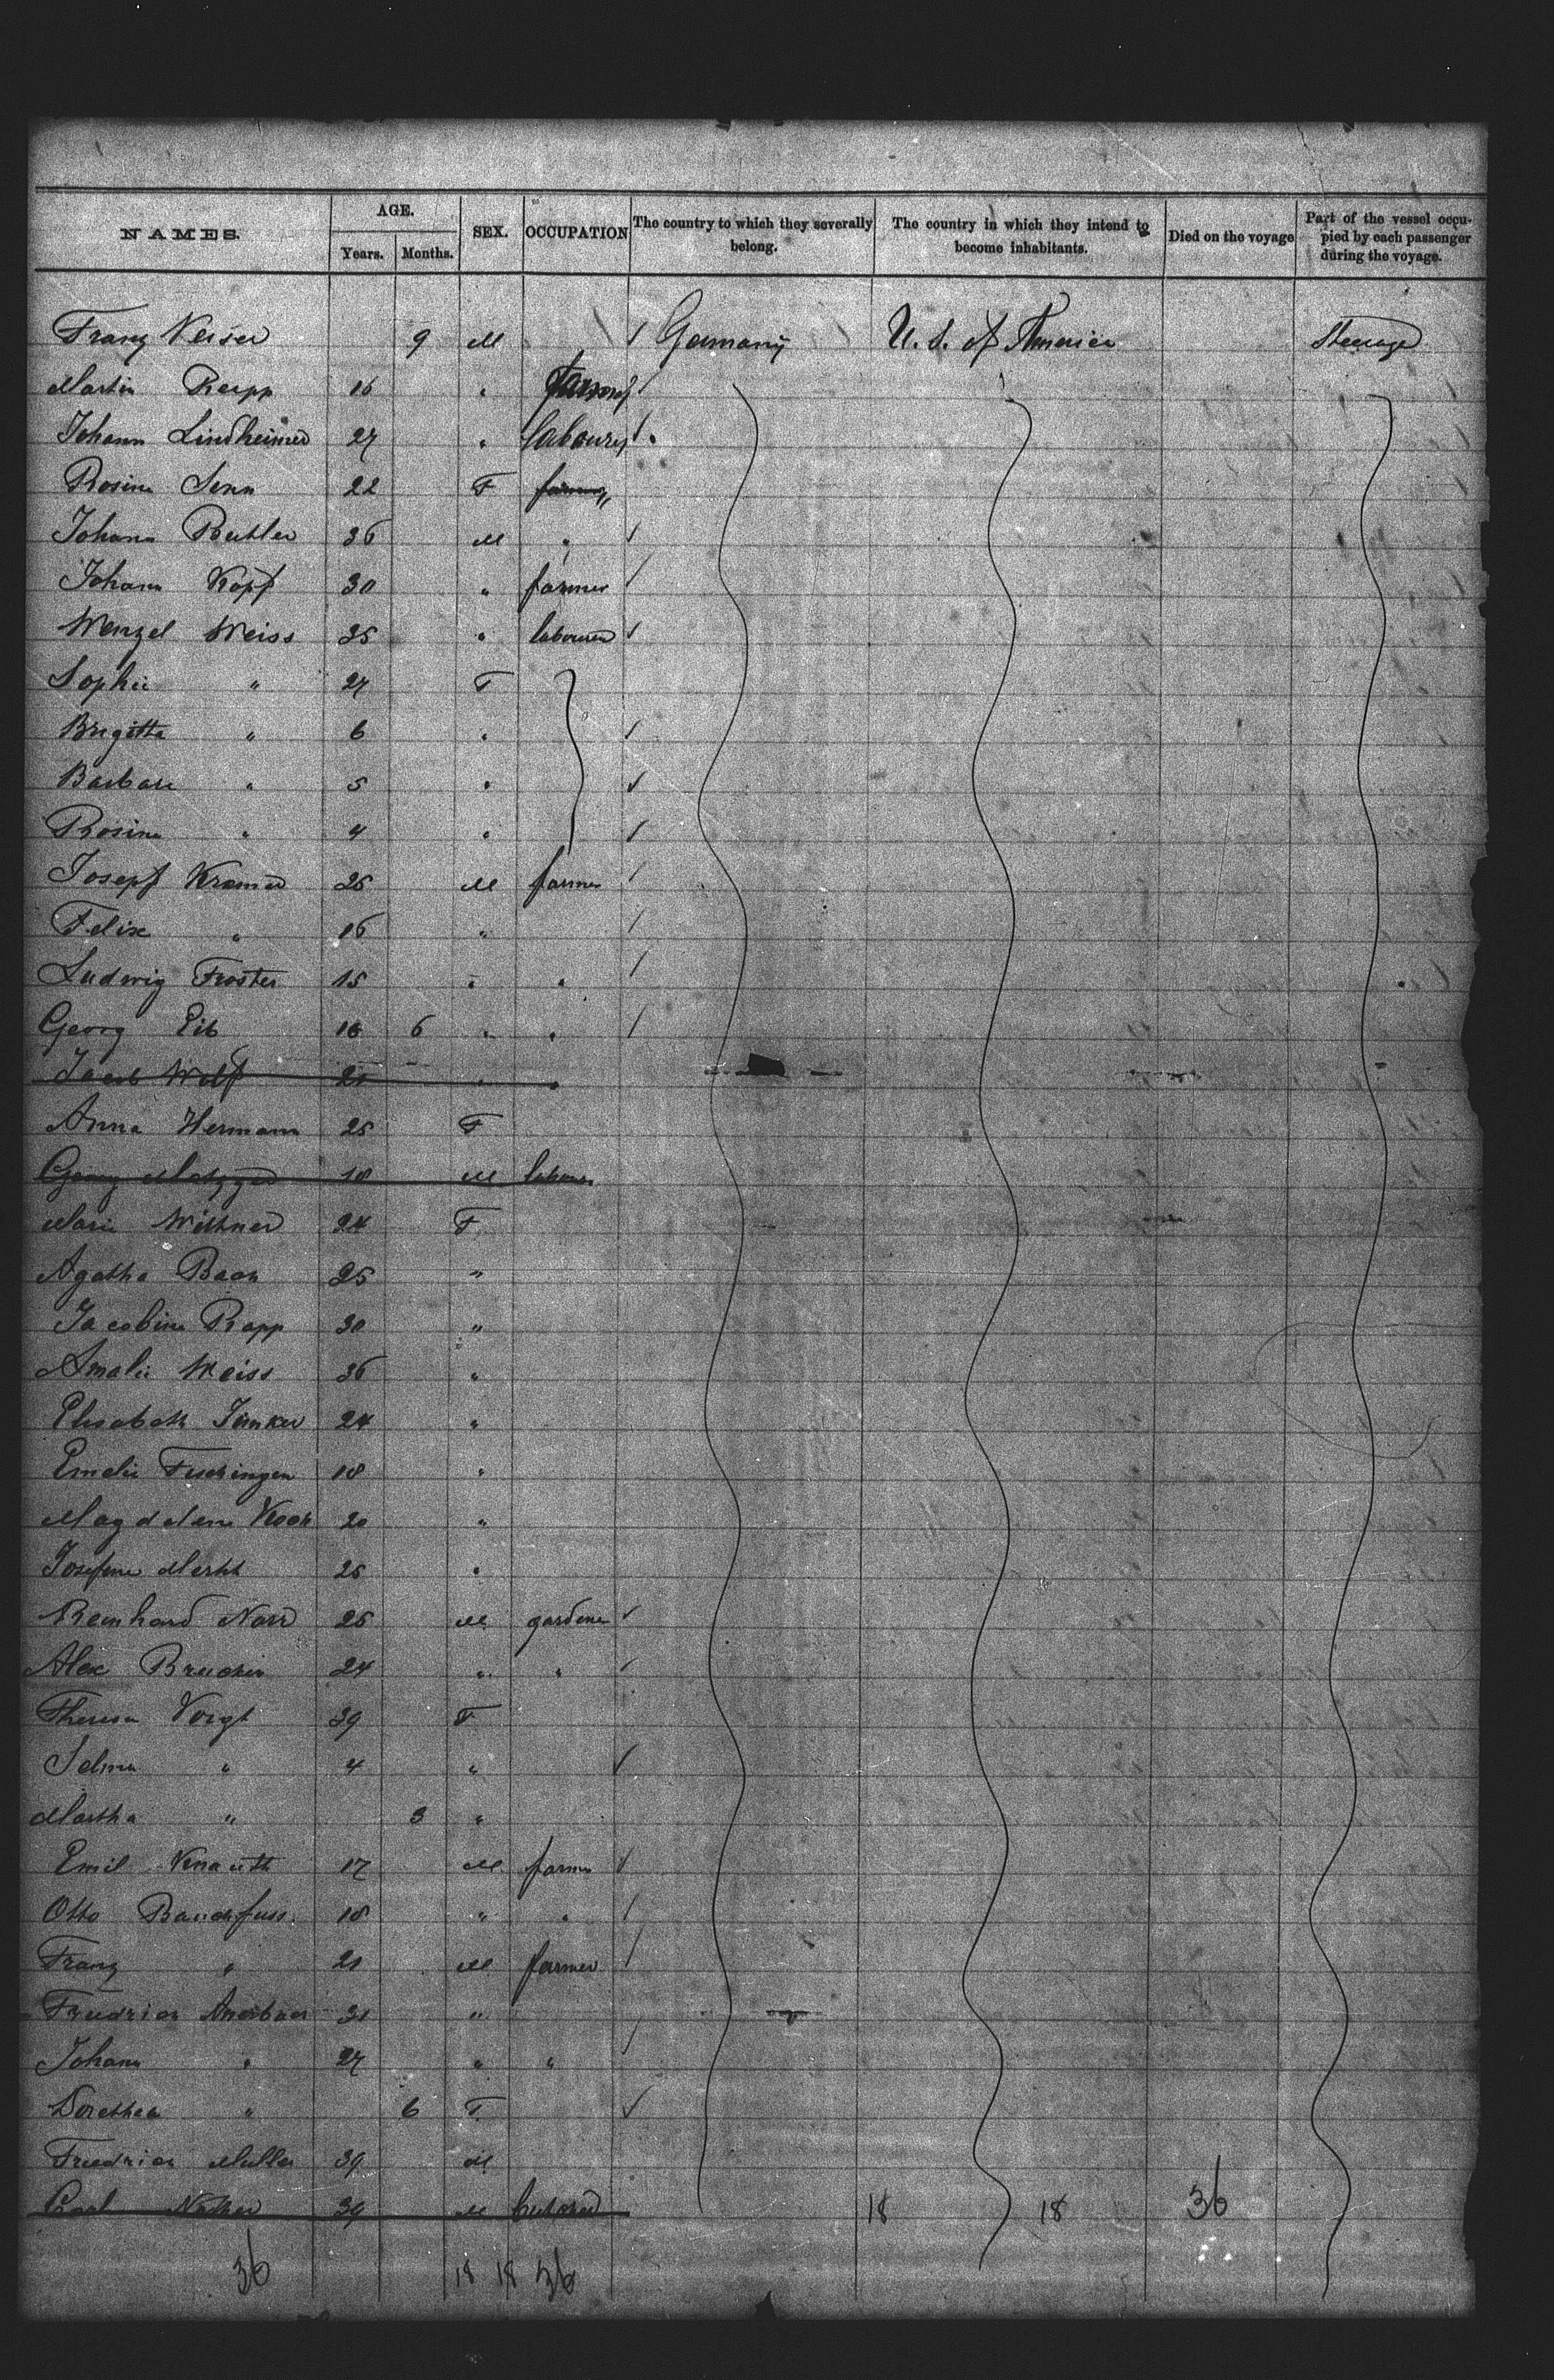 NAMES. AGE. SEX. OCCUPATION The country to which they severally belong. The country in which they intend to become inhabitants. Died on the voyage Part of the vessel occupied by each passenger during the voyage.
Years. Months.
Franz Keiser 9 M Germany U. S. of America Steerage
Martin Rapp 16 " farmer
Johann Lindheimer 27 " labourer
Rosine Senn 22 F farmer "
Johann Buhler 36 M "
Johann Kopf 30 " farmer
Wenzel Weiss 35 " labourer
Sophie " 27 F
Brigitta " 6 "
Barbara " 5 "
Rosina " 4 "
Josepf Kramer 25 M farmer
Felix " 16 "
Ludwig Froster 15 " "
Georg Eib 16 6 " "
Jacob Wolf 21 " "
Anna Hermann 25 F
Georg Metzger 18 M labourer
Marie Wittner 24 F
Agatha Bach 25 "
Jacobine Rapp 30 "
Amalie Weiss 36 "
Elisabeth Junker 24 "
Emelie 18 "
Magdalene Koch 20 "
Josefine 25 "
Reinhard Narr 25 M gardener
Alex 24 " "
Theresa Voigt 39 F
Selma " 4 "
Martha " 3 "
Emil Knauth 17 M farmer
Otto Bauchfuss 18 " "
Franz " 21 M farmer
Friedrich 31 "
Johann " 27 " "
Dorethea " 6 F
Friedrich Muller 39 M
Carl Nather 39 M butcher 18 18 36
36 18 18 36